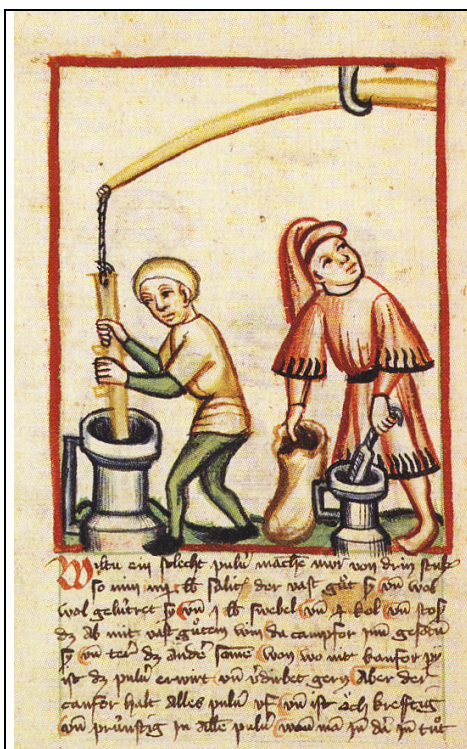 Wiltu ein slecht pulũ mache nur von drin stuk
so nim iiij lb salit͛ der vast gůt sy vñ wol
wol gelutret sy vñ 1 lb swebel vñ 1 kol vñ stoß
dz ab mit vast gůtem win da campfor jnn gesotñ
sy vñ ter̃ dz an der sonne won wo nit kanfor py
ist dz pulũ erwirt vñ v̉dirbet gern Aber der
canfor halt alles pulũ uf vñ ist och krefftig
vñ prúnstig jn alle pulũ wañ mã jn dar jn tůt